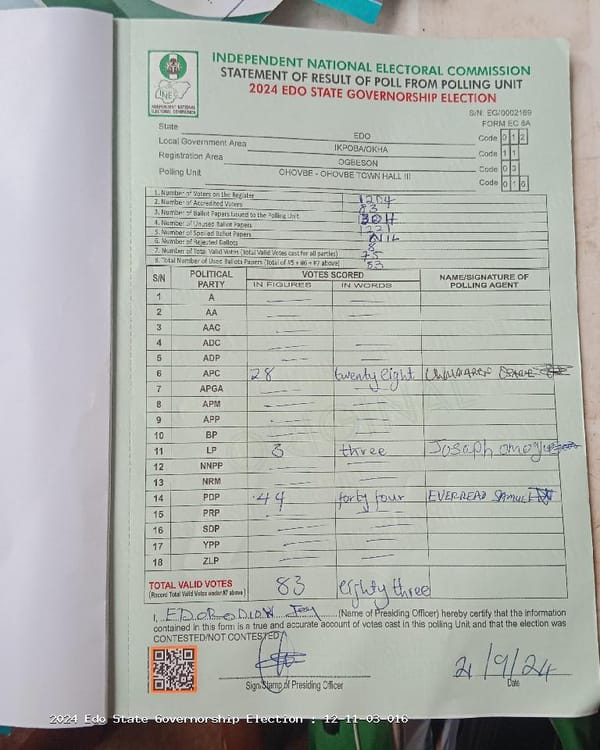 INDEPENDENT NATIONAL ELECTORAL COMMISSION
STATEMENT OF RESULT OF POLL FROM POLLING UNIT
2024 EDO STATE GOVERNORSHIP ELECTION
INEC
INDEPENDENT NATIONAL ELECTORAL COMMISSION
S/N: EG/0002169
FORM EC 8A
State EDO Code 0 1 2
Local Government Area IKPOBA/OKHA Code 1 1
Registration Area OGBESON Code 0 3
Polling Unit OHOVBE - OHOVBE TOWN HALL III Code 0 1 6
1. Number of Voters on the Register 1204
2. Number of Accredited Voters 83
3. Number of Ballot Papers Issued to the Polling Unit
4. Number of Unused Ballot Papers
5. Number of Spoiled Ballot Papers NIL
6. Number of Rejected Ballots 8
7. Number of Total Valid Votes (Total Valid Votes cast for all parties) 75
8. Total Number of Used Ballots Papers (Total of #5 + #6 + #7 above) 83
S/N POLITICAL PARTY VOTES SCORED NAME/SIGNATURE OF POLLING AGENT
IN FIGURES IN WORDS
1 A
2 AA
3 AAC
4 ADC
5 ADP
6 APC 28 twenty eight
7 APGA
8 APM
9 APP
10 BP
11 LP 3 three Joseph
12 NNPP
13 NRM
14 PDP 44 forty four EVEREAD SAMUEL
15 PRP
16 SDP
17 YPP
18 ZLP
TOTAL VALID VOTES 83 eighty three
(Record Total Valid Votes under #7 above)
I, EDORODION Joy (Name of Presiding Officer) hereby certify that the information
contained in this form is a true and accurate account of votes cast in this polling Unit and that the election was
CONTESTED/NOT CONTESTED
Sign/Stamp of Presiding Officer
21/9/24
Date
2024 Edo State Governorship Election : 12-11-03-016